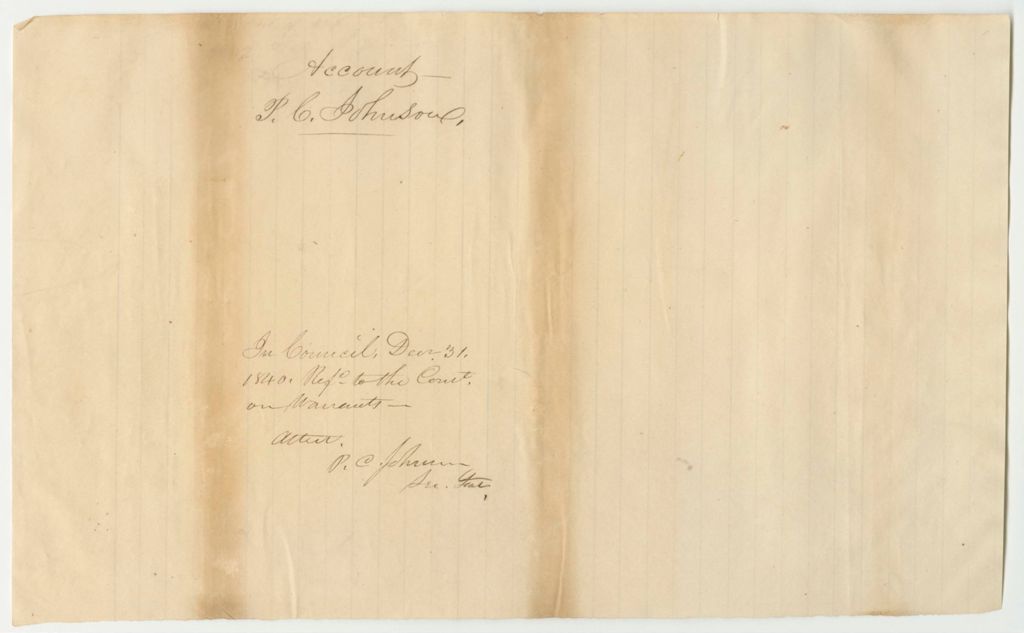 Account—
P. C. Johnson,
In Council, Decr 31.
1840. Refd to the Comt.
on Warrants—
Attest.
P. C. Johnson
Sec. State,